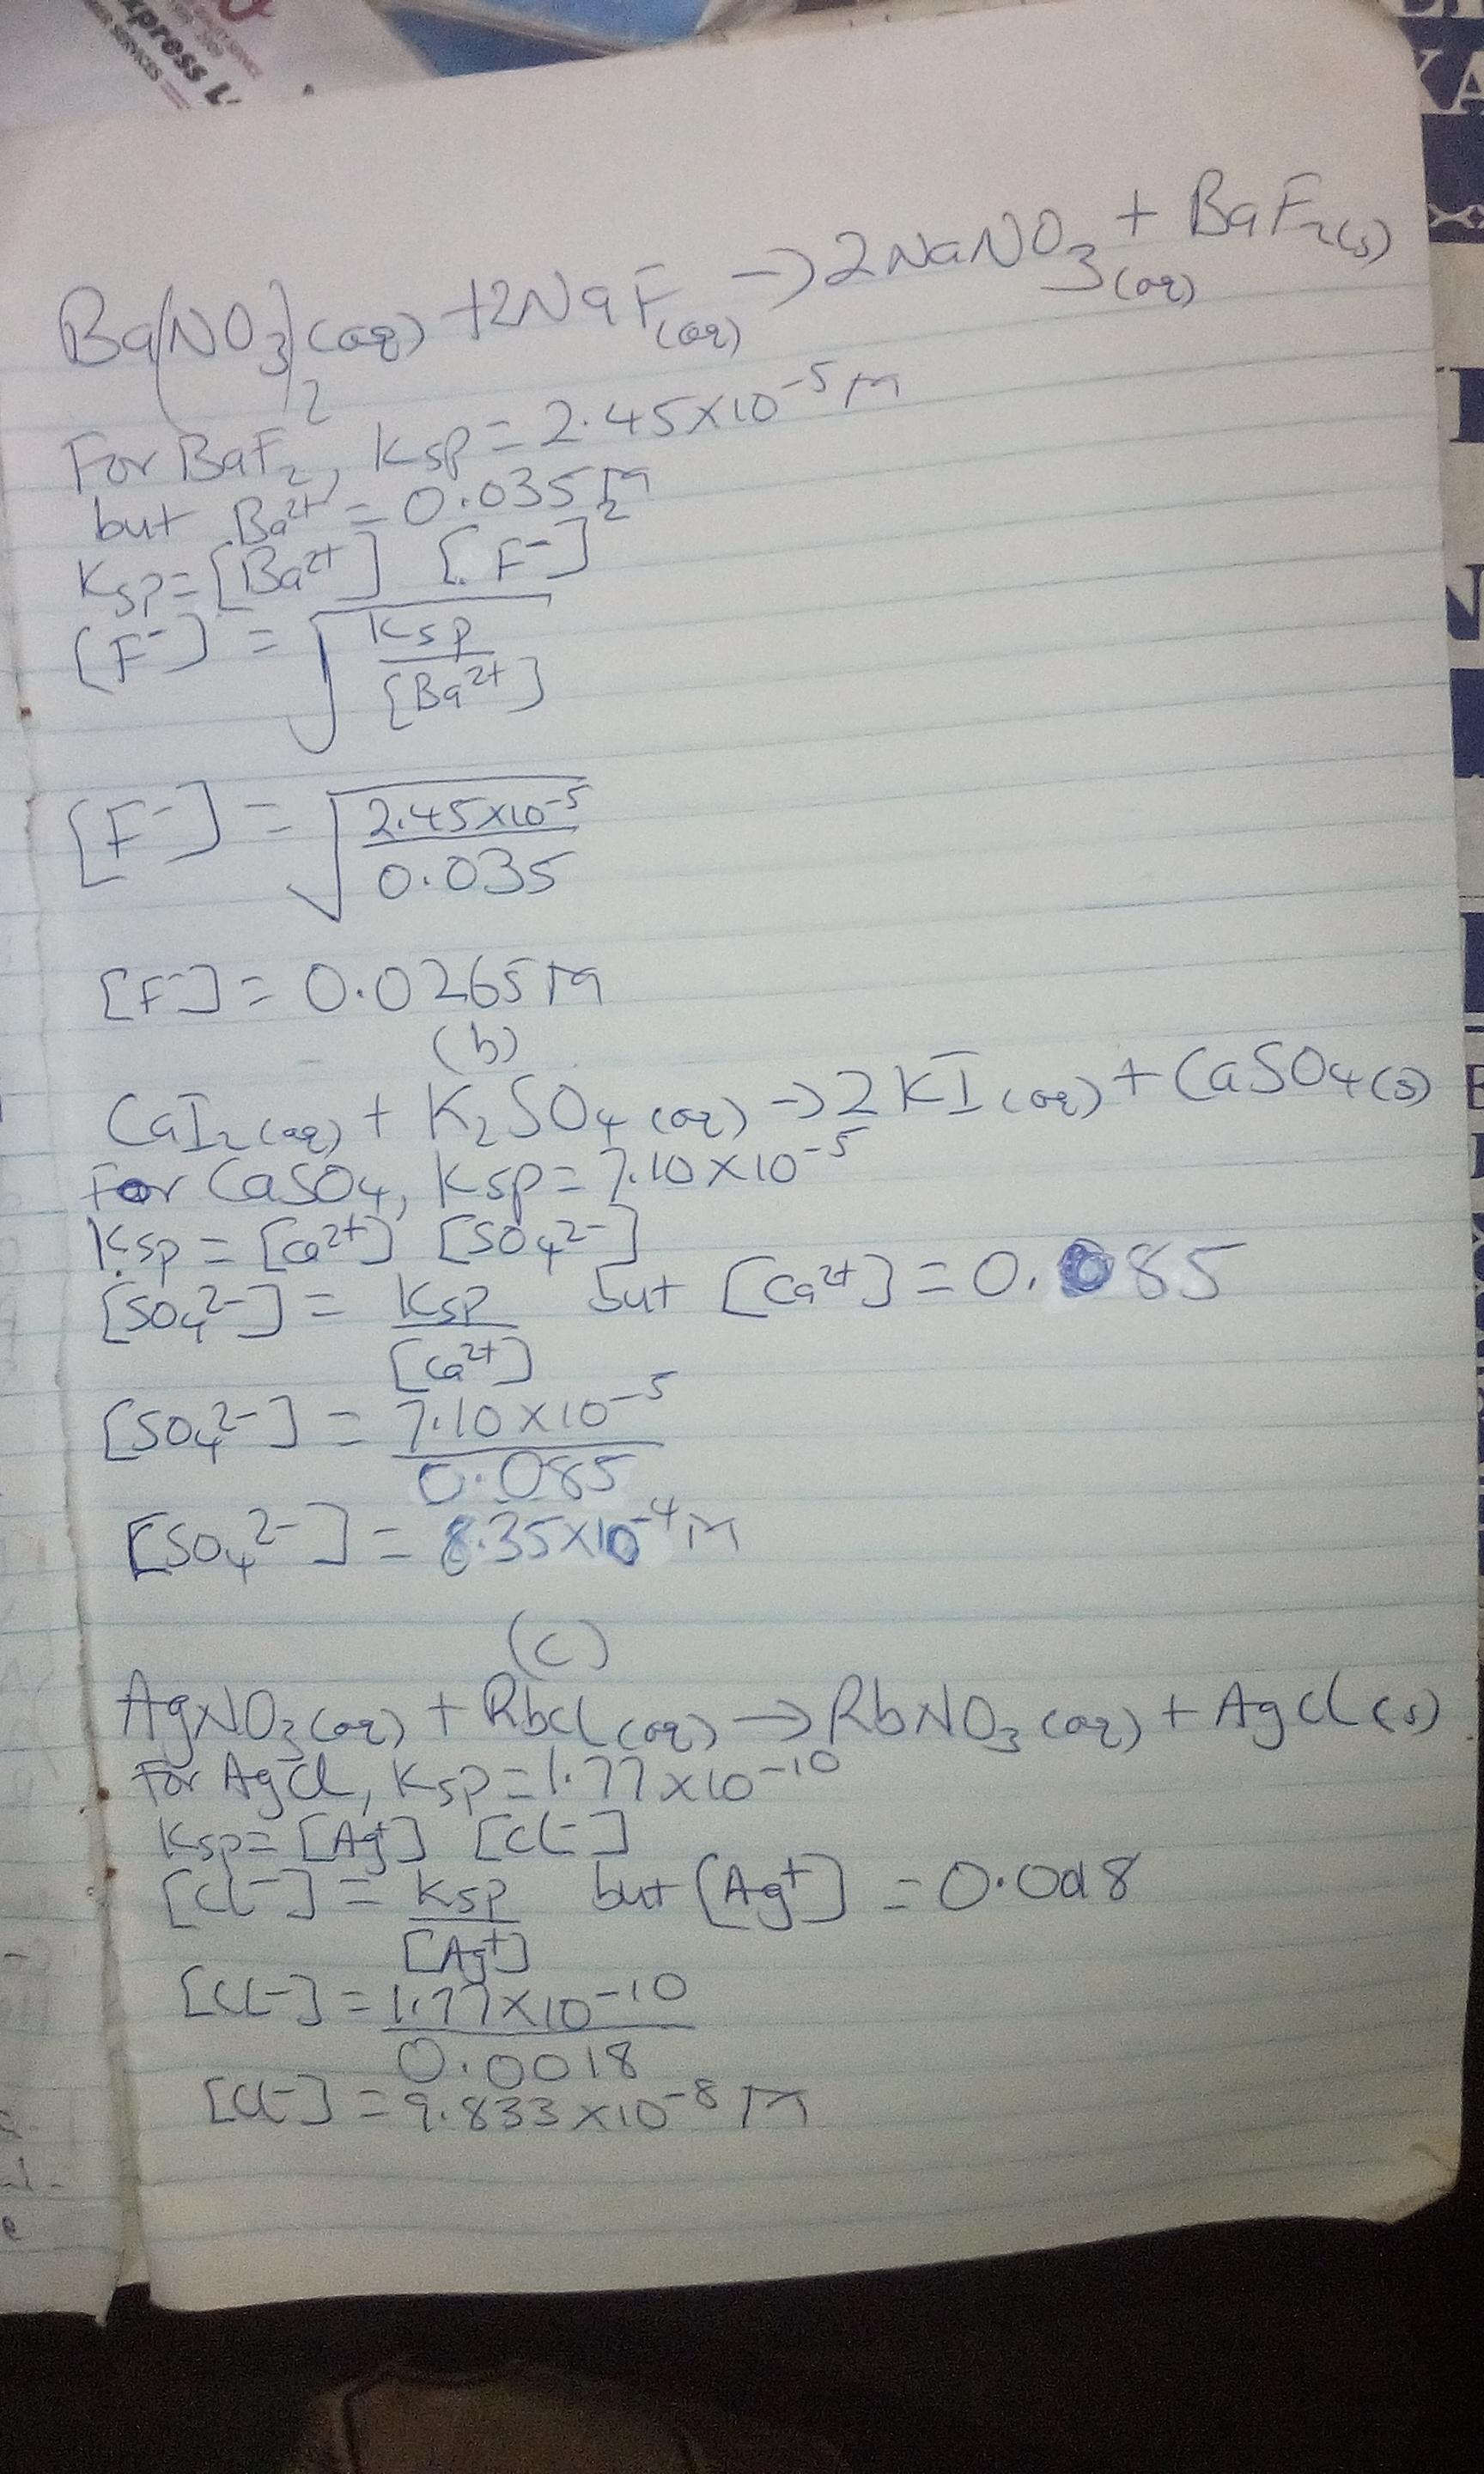 xpress L
SERVICES
KA
Ba(NO3)2(aq) + 2NaF(aq) → 2NaNO3(aq) + BaF2(s)
For BaF2, Ksp = 2.45×10⁻⁵ M
but Ba²⁺ = 0.035M
Ksp = [Ba²⁺] [F⁻]²
[F⁻] = √(Ksp / [Ba²⁺])
[F⁻] = √(2.45×10⁻⁵ / 0.035)
[F⁻] = 0.0265M
(b)
CaI2(aq) + K2SO4(aq) → 2KI(aq) + CaSO4(s)
For CaSO4, Ksp = 7.10×10⁻⁵
Ksp = [Ca²⁺] [SO4²⁻]
[SO4²⁻] = Ksp / [Ca²⁺] but [Ca²⁺] = 0.085
[SO4²⁻] = 7.10×10⁻⁵ / 0.085
[SO4²⁻] = 8.35×10⁻⁴ M
(C)
AgNO3(aq) + RbCl(aq) → RbNO3(aq) + AgCl(s)
For AgCl, Ksp = 1.77×10⁻¹⁰
Ksp = [Ag⁺] [Cl⁻]
[Cl⁻] = Ksp / [Ag⁺] but [Ag⁺] = 0.0018
[Cl⁻] = 1.77×10⁻¹⁰ / 0.0018
[Cl⁻] = 9.833×10⁻⁸ M